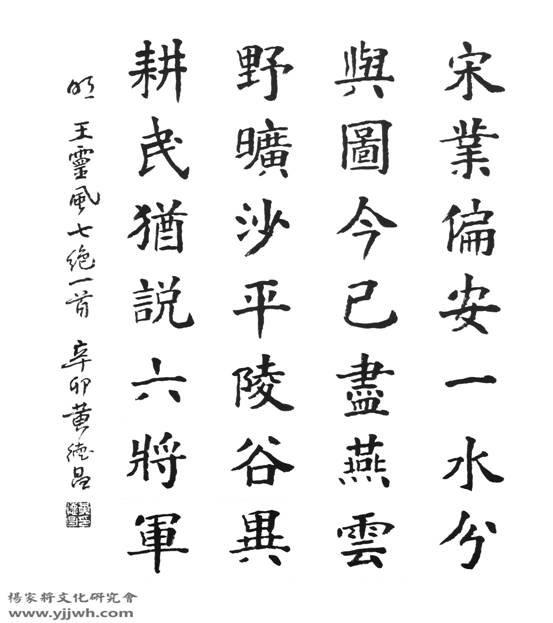 宋業偏安一水分
與圖今已盡燕雲
野曠沙平陵谷異
耕民猶説六將軍
明 王靈風七絶一首 辛卯黄德昌
楊家将文化研究會
www.yjjwh.com